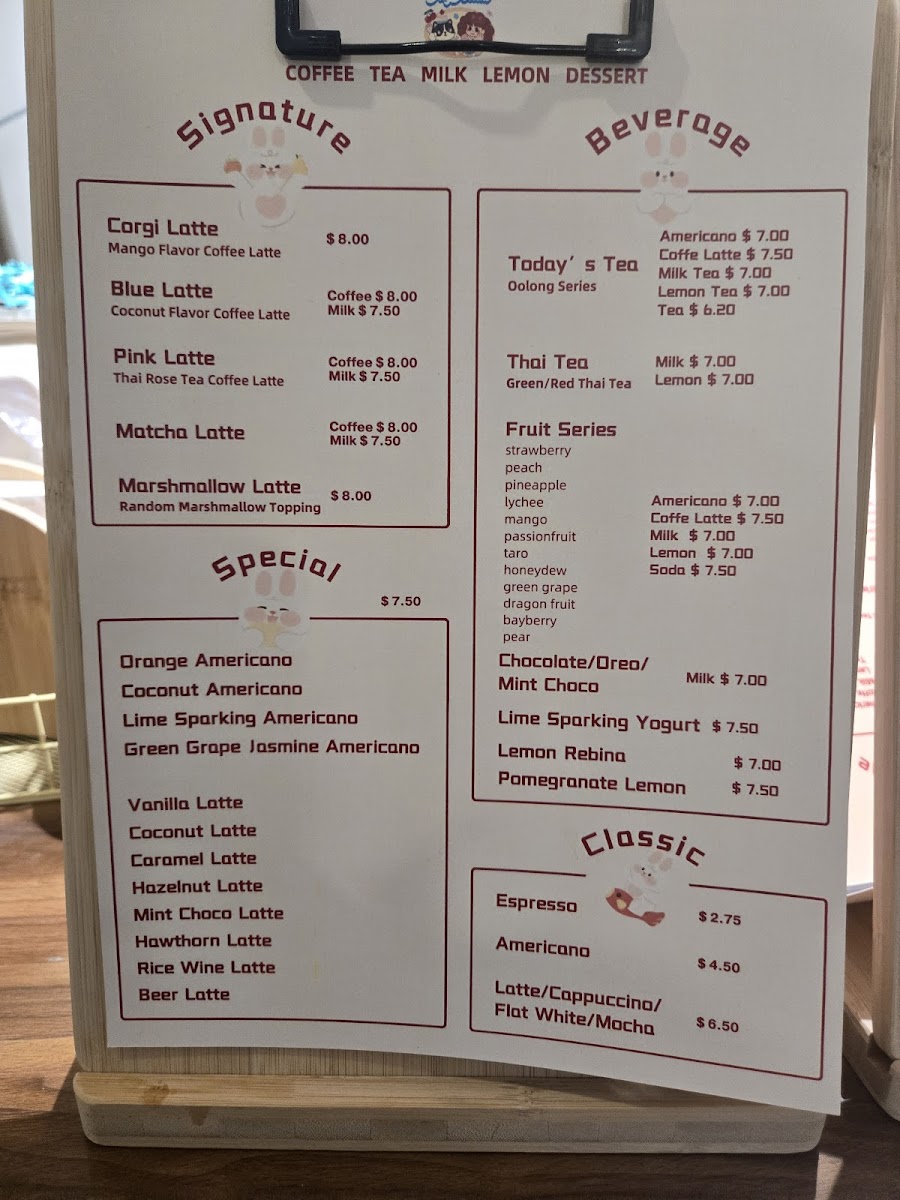 COFFEE TEA MILK LEMON DESSERT
Signature
Corgi Latte
Mango Flavor Coffee Latte
$ 8.00
Blue Latte
Coconut Flavor Coffee Latte
Coffee $ 8.00
Milk $ 7.50
Pink Latte
Thai Rose Tea Coffee Latte
Coffee $ 8.00
Milk $ 7.50
Matcha Latte
Coffee $ 8.00
Milk $ 7.50
Marshmallow Latte
Random Marshmallow Topping
$ 8.00
Special
$ 7.50
Orange Americano
Coconut Americano
Lime Sparking Americano
Green Grape Jasmine Americano
Vanilla Latte
Coconut Latte
Caramel Latte
Hazelnut Latte
Mint Choco Latte
Hawthorn Latte
Rice Wine Latte
Beer Latte
Beverage
Today's Tea
Oolong Series
Americano $ 7.00
Coffe Latte $ 7.50
Milk Tea $ 7.00
Lemon Tea $ 7.00
Tea $ 6.20
Thai Tea
Green/Red Thai Tea
Milk $ 7.00
Lemon $ 7.00
Fruit Series
strawberry
peach
pineapple
lychee
mango
passionfruit
taro
honeydew
green grape
dragon fruit
bayberry
pear
Americano $ 7.00
Coffe Latte $ 7.50
Milk $ 7.00
Lemon $ 7.00
Soda $ 7.50
Chocolate/Oreo/
Mint Choco
Milk $ 7.00
Lime Sparking Yogurt $ 7.50
Lemon Rebina $ 7.00
Pomegranate Lemon $ 7.50
Classic
Espresso $ 2.75
Americano $ 4.50
Latte/Cappuccino/
Flat White/Mocha $ 6.50